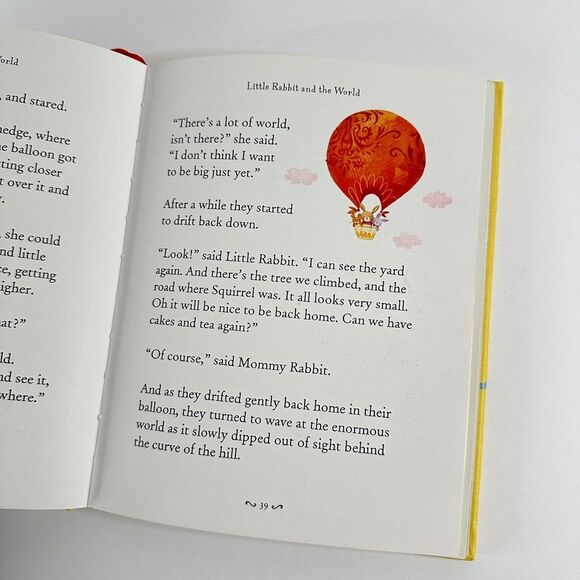 World
, and stared.
hedge, where
e balloon got
tting closer
t over it and
y.
, she could
nd little
e, getting
igher.
hat?”
ld.
nd see it,
where.”
Little Rabbit and the World
“There’s a lot of world,
isn’t there?” she said.
“I don’t think I want
to be big just yet.”
After a while they started
to drift back down.
“Look!” said Little Rabbit. “I can see the yard
again. And there’s the tree we climbed, and the
road where Squirrel was. It all looks very small.
Oh it will be nice to be back home. Can we have
cakes and tea again?”
“Of course,” said Mommy Rabbit.
And as they drifted gently back home in their
balloon, they turned to wave at the enormous
world as it slowly dipped out of sight behind
the curve of the hill.
39